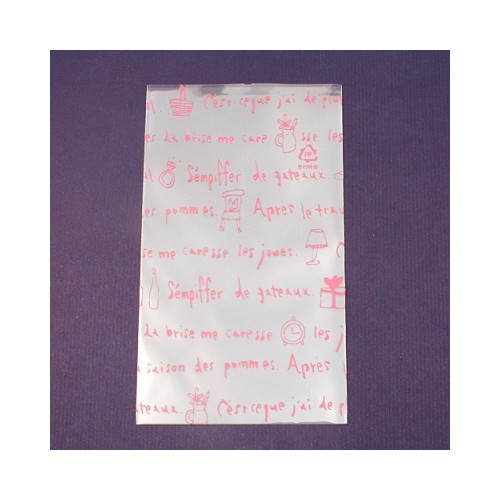 al. C'est ce que j'ai de plus
es La brise me caresse les
al Sémpiffer de gateaux.
PP
os pommes. Après le trav
se me caresse les joues. C
Sémpiffer de gateaux.
La brise me caresse les j
a saison des pommes. Après
ateaux. C'est ce que j'ai de p